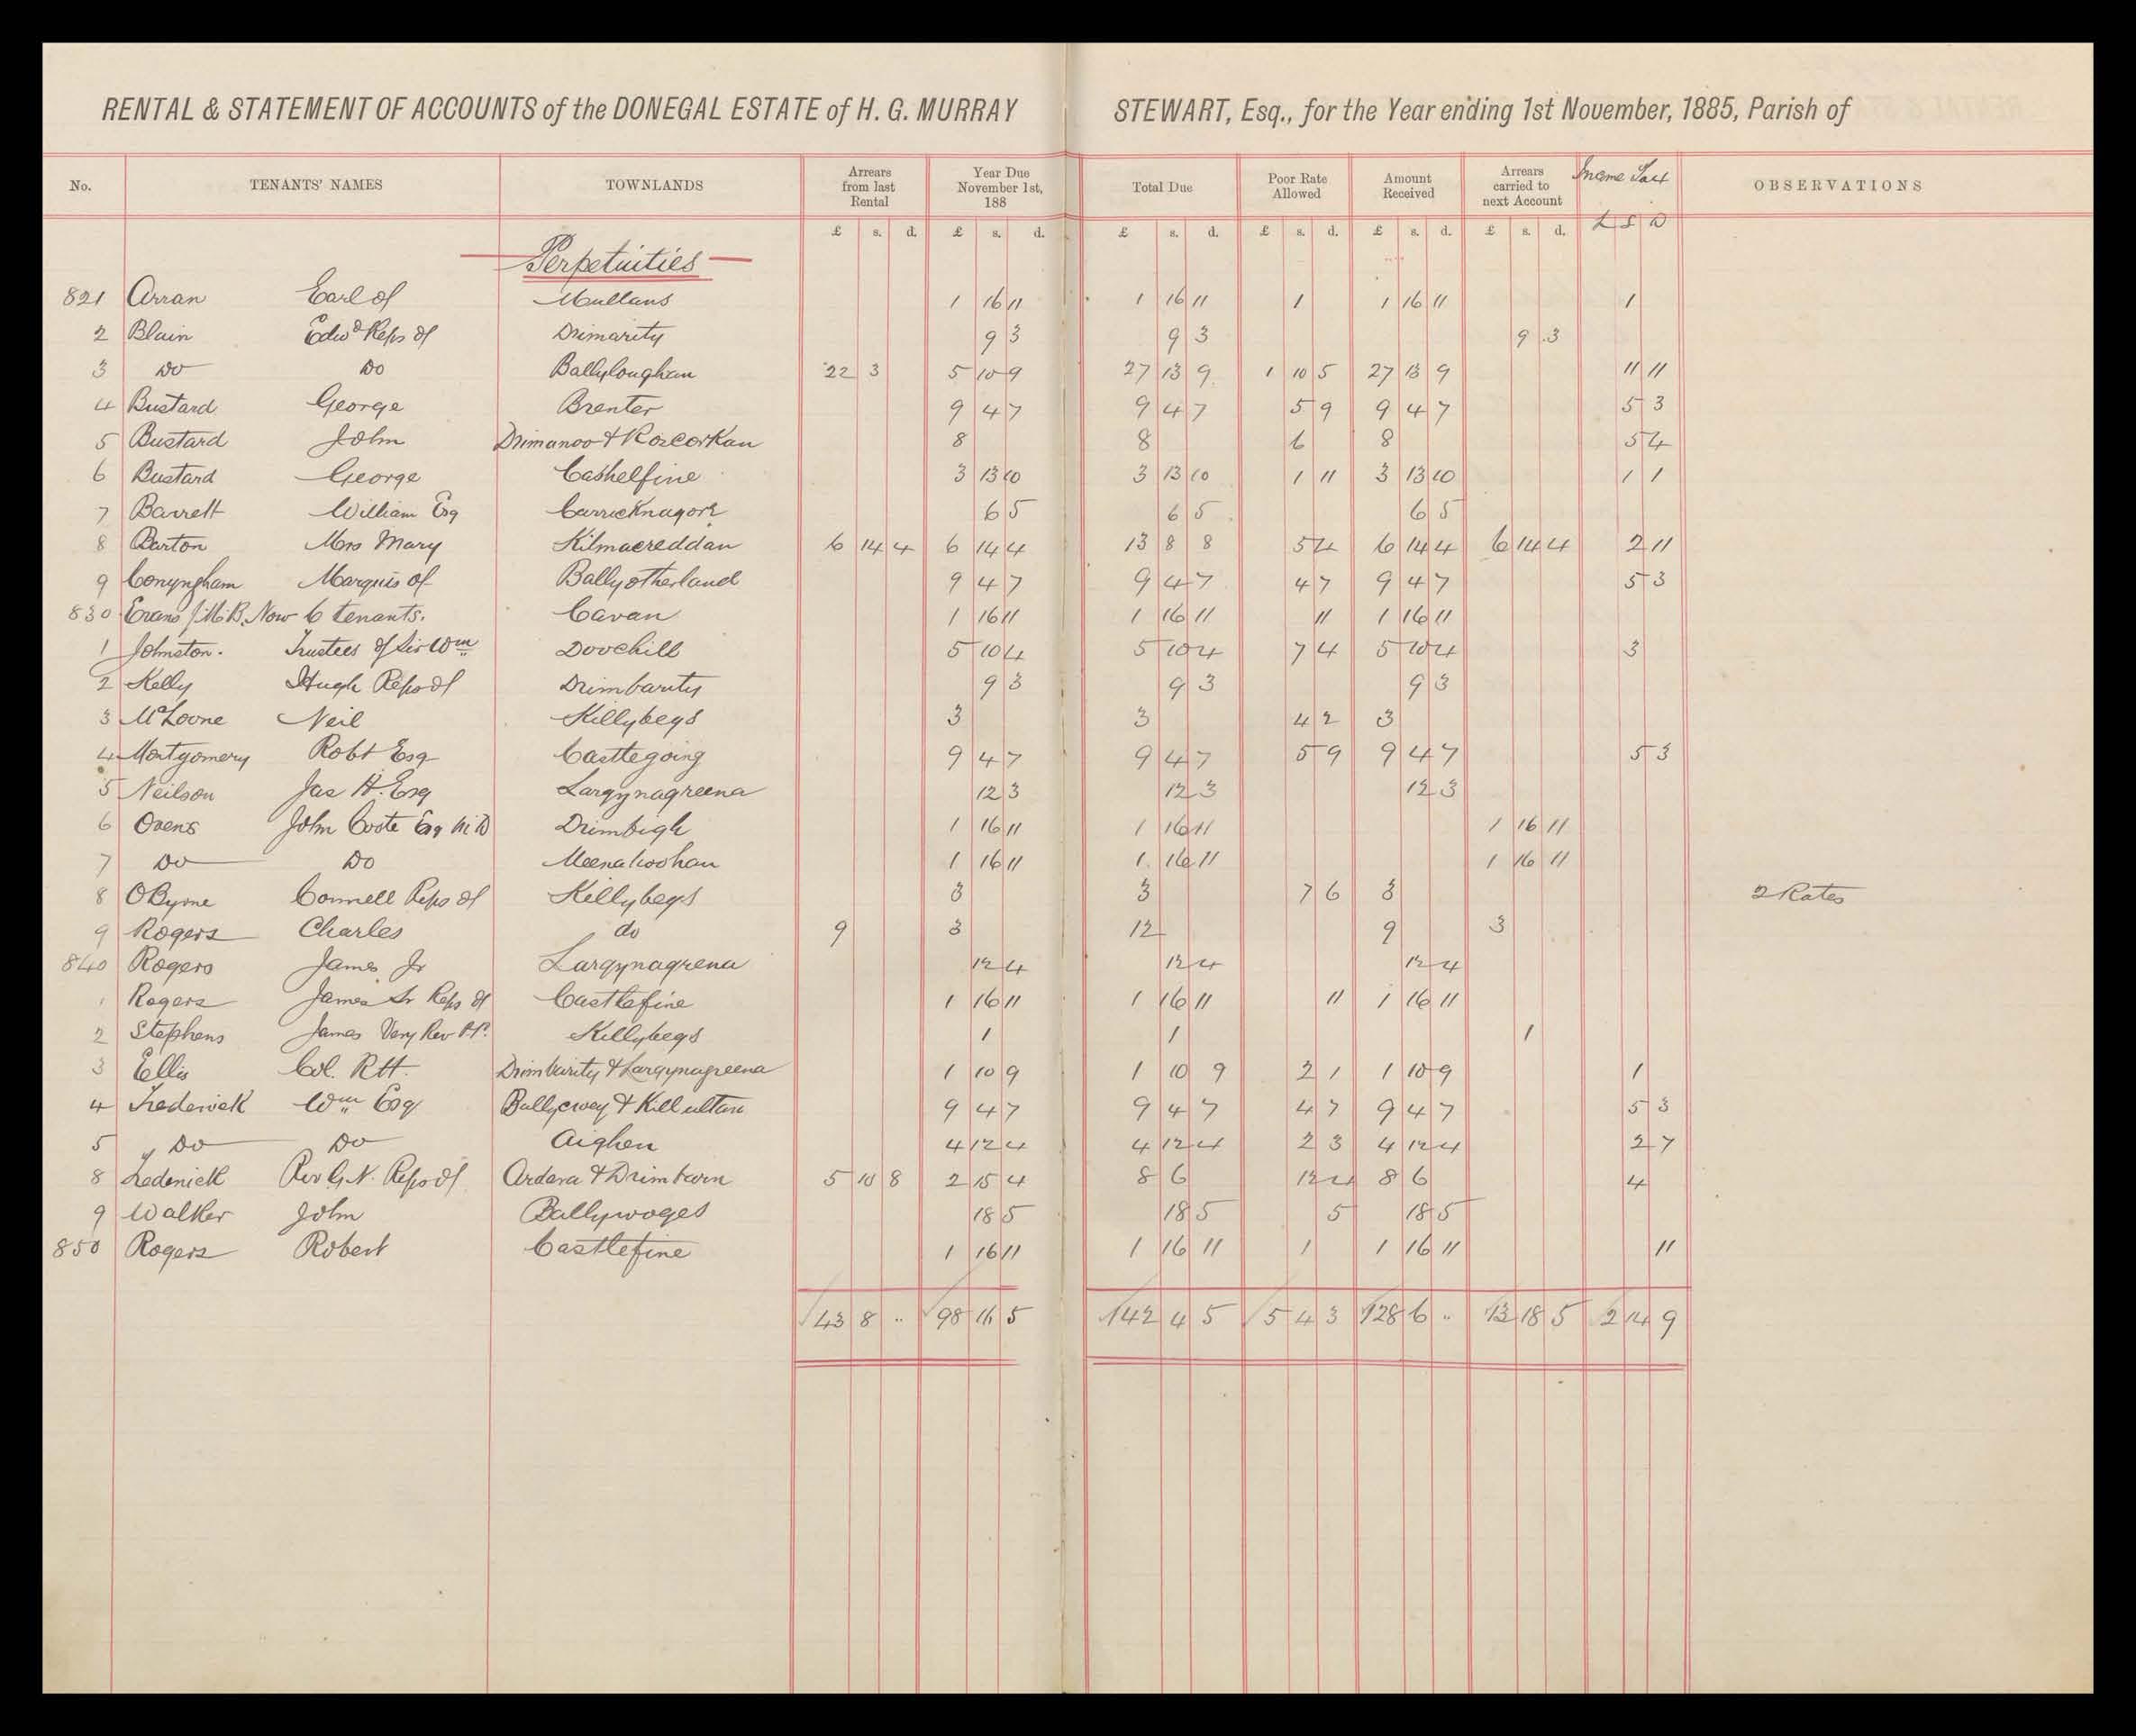 RENTAL & STATEMENT OF ACCOUNTS of the DONEGAL ESTATE of H. G. MURRAY STEWART, Esq., for the Year ending 1st November, 1885, Parish of
No. TENANTS' NAMES TOWNLANDS Arrears from last Rental Year Due November 1st, 188 Total Due Poor Rate Allowed Amount Received Arrears carried to next Account Income Tax OBSERVATIONS
£ s. d. £ s. d. £ s. d. £ s. d. £ s. d. £ s. d. £ S D
Perpetuities
821 Arran Earl of Mullans 1 16 11 1 16 11 1 1 16 11 1
2 Blain Edwd Reps of Drimarity 9 3 9 3 9 3
3 Do Do Ballyloughan 22 3 5 10 9 27 13 9 1 10 5 27 13 9 11 11
4 Bustard George Brenter 9 4 7 9 4 7 5 9 9 4 7 5 3
5 Bustard John Drimanoo & Roscorkan 8 8 6 8 5 4
6 Bustard George Cashelfine 3 13 10 3 13 10 1 11 3 13 10 1 1
7 Barrett William Esq Carricknagore 6 5 6 5 6 5
8 Barton Mrs Mary Kilmacreddan 6 14 4 6 14 4 13 8 8 5 4 6 14 4 6 14 4 2 11
9 Conyngham Marquis of Ballyotherland 9 4 7 9 4 7 4 7 9 4 7 5 3
830 Evans J.M.B. Now 6 tenants. Cavan 1 16 11 1 16 11 11 1 16 11
1 Johnston. Trustees of Sir Wm Doochill 5 10 4 5 10 4 7 4 5 10 4 3
2 Kelly Hugh Reps of Drimbarity 9 3 9 3 9 3
3 McLoone Neil Killybegs 3 3 4 2 3
4 Montgomery Robt Esq Castlegoing 9 4 7 9 4 7 5 9 9 4 7 5 3
5 Neilson Jas H. Esq Largynagreena 12 3 12 3 12 3
6 Ovens John Coote Esq M.D Drimbigh 1 16 11 1 16 11 1 16 11
7 Do Do Meenahoohan 1 16 11 1 16 11 1 16 11
8 OByrne Connell Reps of Killybegs 3 3 7 6 3 2 Rates
9 Rogers Charles do 9 3 12 9 3
840 Rogers James Jr Largynagrena 12 4 12 4 12 4
1 Rogers James Sr Reps of Castlefine 1 16 11 1 16 11 11 1 16 11
2 Stephens James Very Rev Killybegs 1 1 1
3 Ellis Col. R H. Drimbarity & Largynagreena 1 10 9 1 10 9 2 1 1 10 9 1
4 Tredenick Wm Esq Ballycroy & Killultan 9 4 7 9 4 7 4 7 9 4 7 5 3
5 Do Do Aighen 4 12 4 4 12 4 2 3 4 12 4 2 7
8 Tredenick Rev G.N. Reps of Ardara & Drimbarn 5 10 8 2 15 4 8 6 12 4 8 6 4
9 Walker John Ballywoges 18 5 18 5 5 18 5
850 Rogers Robert Castlefine 1 16 11 1 16 11 1 1 16 11 11
43 8 .. 98 16 5 142 4 5 5 4 3 128 6 .. 13 18 5 2 14 9